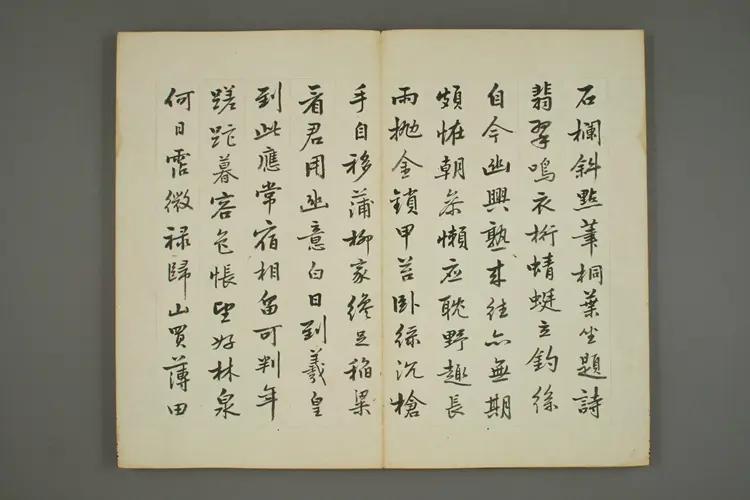 石欄斜點筆桐葉坐題詩
翡翠鳴衣桁蜻蜓立釣絲
自今幽興熟來往亦無期
頗恠朝參懶應耽野趣長
雨拋金鎖甲苔臥綠沉槍
手自移蒲柳家纔足稻粱
看君用幽意白日到羲皇
到此應常宿相留可判年
蹉跎暮容色悵望好林泉
何日霑微祿歸山買薄田